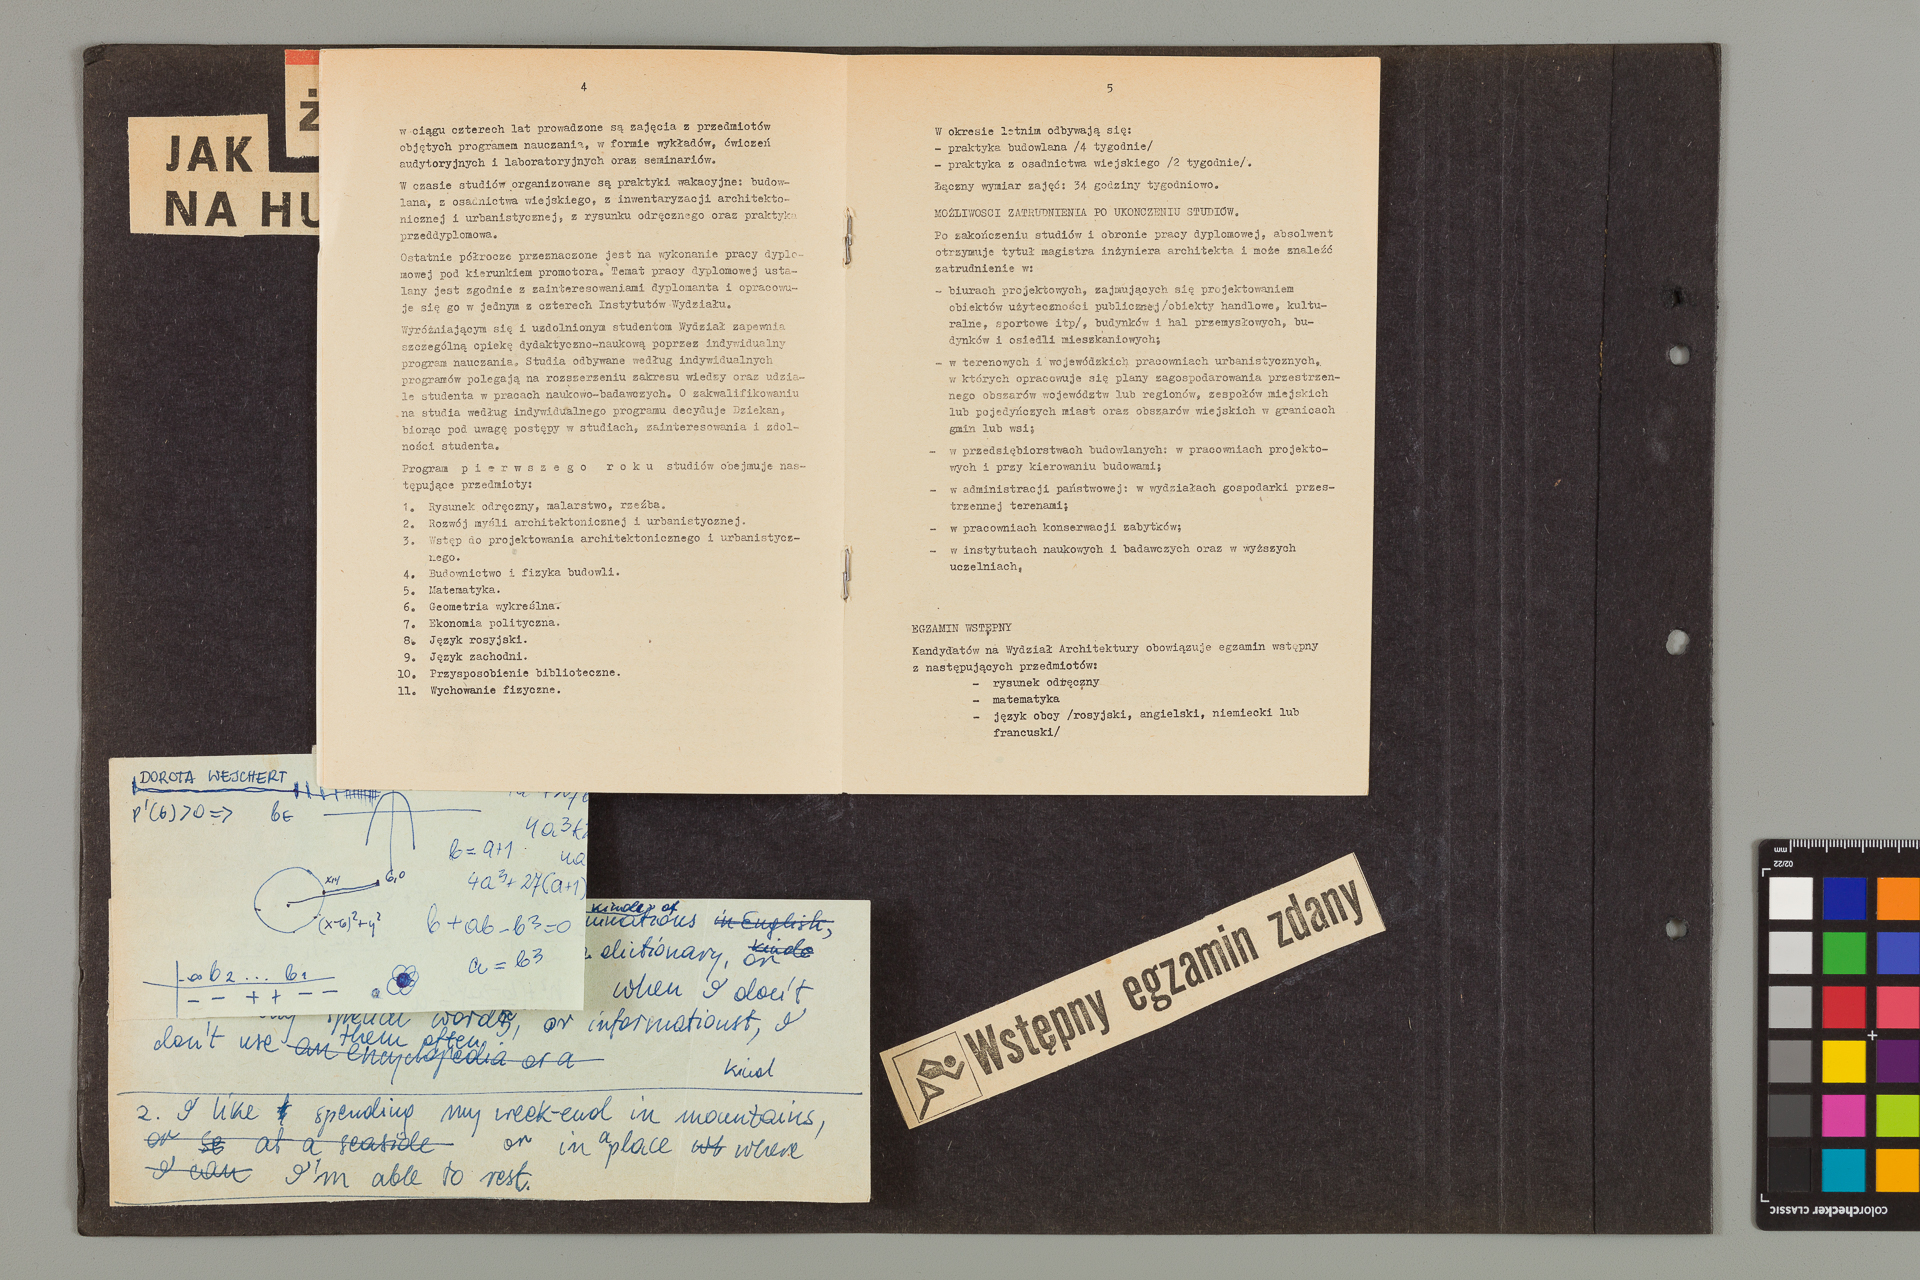 Ż
JAK
NA HU
4
w ciągu czterech lat prowadzone są zajęcia z przedmiotów
objętych programem nauczania, w formie wykładów, ćwiczeń
audytoryjnych i laboratoryjnych oraz seminariów.
W czasie studiów organizowane są praktyki wakacyjne: budow-
lana, z osadnictwa wiejskiego, z inwentaryzacji architekto-
nicznej i urbanistycznej, z rysunku odręcznego oraz praktyka
przeddyplomowa.
Ostatnie półrocze przeznaczone jest na wykonanie pracy dyplo-
mowej pod kierunkiem promotora. Temat pracy dyplomowej usta-
lany jest zgodnie z zainteresowaniami dyplomanta i opracowu-
je się go w jednym z czterech Instytutów Wydziału.
Wyróżniającym się i uzdolnionym studentom Wydział zapewnia
szczególną opiekę dydaktyczno-naukową poprzez indywidualny
program nauczania. Studia odbywane według indywidualnych
programów polegają na rozszerzeniu zakresu wiedzy oraz udzia-
le studenta w pracach naukowo-badawczych. O zakwalifikowaniu
na studia według indywidualnego programu decyduje Dziekan,
biorąc pod uwagę postępy w studiach, zainteresowania i zdol-
ności studenta.
Program p i e r w s z e g o r o k u studiów obejmuje nas-
tępujące przedmioty:
1. Rysunek odręczny, malarstwo, rzeźba.
2. Rozwój myśli architektonicznej i urbanistycznej.
3. Wstęp do projektowania architektonicznego i urbanistycz-
nego.
4. Budownictwo i fizyka budowli.
5. Matematyka.
6. Geometria wykreślna.
7. Ekonomia polityczna.
8. Język rosyjski.
9. Język zachodni.
10. Przysposobienie biblioteczne.
11. Wychowanie fizyczne.
5
W okresie letnim odbywają się:
- praktyka budowlana /4 tygodnie/
- praktyka z osadnictwa wiejskiego /2 tygodnie/.
Łączny wymiar zajęć: 34 godziny tygodniowo.
MOŻLIWOSCI ZATRUDNIENIA PO UKONCZENIU STUDIÓW.
Po zakończeniu studiów i obronie pracy dyplomowej, absolwent
otrzymuje tytuł magistra inżyniera architekta i może znaleźć
zatrudnienie w:
- biurach projektowych, zajmujących się projektowaniem
obiektów użyteczności publicznej/obiekty handlowe, kultu-
ralne, sportowe itp/, budynków i hal przemysłowych, bu-
dynków i osiedli mieszkaniowych;
- w terenowych i wojewódzkich pracowniach urbanistycznych,
w których opracowuje się plany zagospodarowania przestrzen-
nego obszarów województw lub regionów, zespołów miejskich
lub pojedyńczych miast oraz obszarów wiejskich w granicach
gmin lub wsi;
- w przedsiębiorstwach budowlanych: w pracowniach projekto-
wych i przy kierowaniu budowami;
- w administracji państwowej: w wydziałach gospodarki przes-
trzennej terenami;
- w pracowniach konserwacji zabytków;
- w instytutach naukowych i badawczych oraz w wyższych
uczelniach.
EGZAMIN WSTĘPNY
Kandydatów na Wydział Architektury obowiązuje egzamin wstępny
z następujących przedmiotów:
- rysunek odręczny
- matematyka
- język obcy /rosyjski, angielski, niemiecki lub
francuski/
DOROTA WEJCHERT
p'(b)>0 =>
b=a+1
4a³+27(a+1)
(x-6)²+y²
b+ab-b³=0
a=b³
-∞ b2 ... b1
- - + + - -
kinds of
in English,
dictionary, kinds
or
when I don't
words, or informationst, I
them often
don't use an encyclopedia or a
kind
2. I like spending my week-end in mountains,
or se at a seaside or in a place wh where
I can I'm able to rest.
Wstępny egzamin zdany
mm
02/22
colorchecker CLASSIC